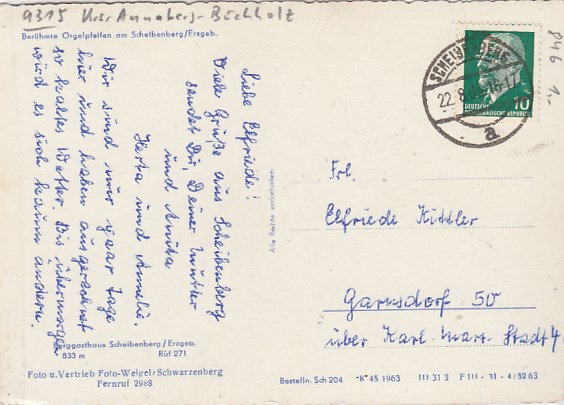 9315 Krs. Annaberg-Buchholz
Berühmte Orgelpfeifen am Scheibenberg/Erzgeb.
Liebe Elfriede!
Viele Grüße aus Scheibenberg
sendet Dir, Deiner Mutter
und Anita
Herta und Amelie.
Wir sind nur zwar Tage
hier und haben ausgerechnet
so kaltes Wetter. Bis übermorgen
wird es sich kaum ändern.
Berggasthaus Scheibenberg/Erzgeb.
833 m Ruf 271
Foto u. Vertrieb Foto-Weigel/Schwarzenberg
Fernruf 2988
Alle Rechte vorbehalten
SCHEIBENBERG
22.8.
a
10
DEUTSCHE
DEMOKRATISCHE REPUBLIK
846
1,-
Frl.
Elfriede Kittler
Garnsdorf 50
über Karl-Marx-Stadt 4
Bestelln. Sch 204 "K" 45 1963 III 31 3 F III - 31 - 4/5263